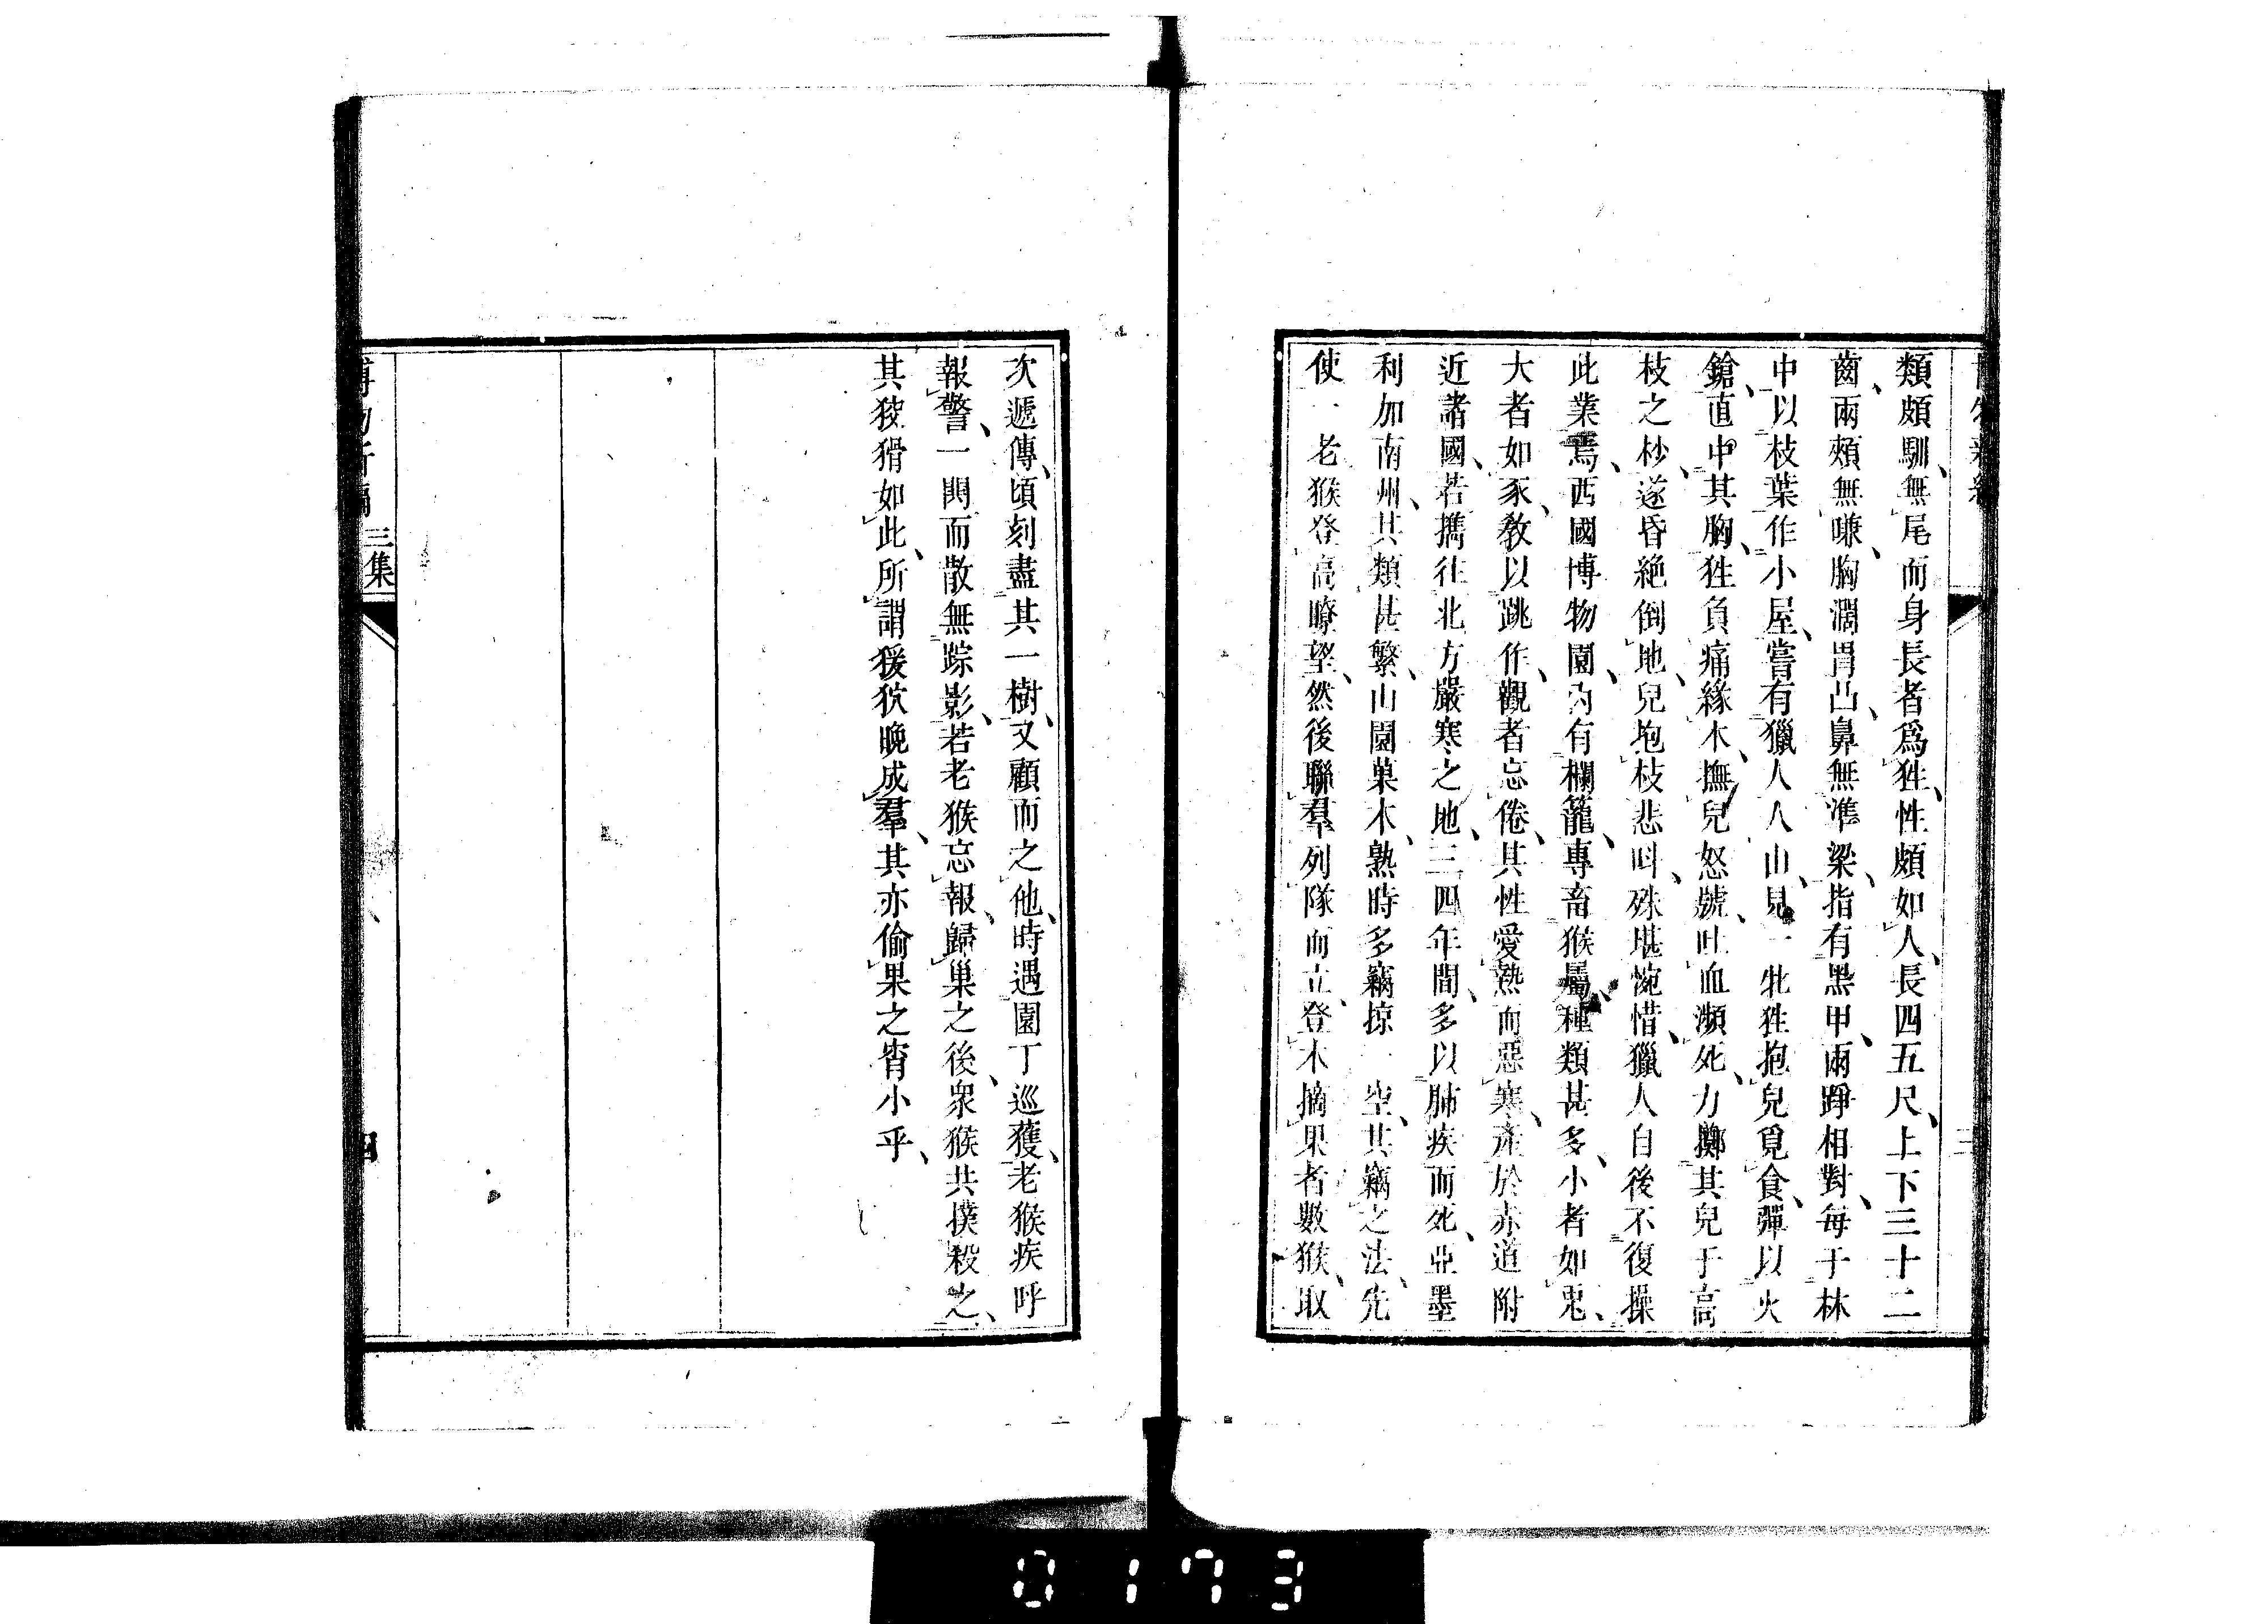 類頗馴、無尾而身長者爲狌、性頗如人、長四五尺、上下三十二
齒、兩頰無嗛、胸濶胃凸、鼻無準梁、指有黑甲、兩踭相對、每于林
中以枝葉作小屋、嘗有獵人入山、見一牝狌抱兒覓食、彈以火
鎗、直中其胸、狌負痛緣木、撫兒怒號、吐血瀕死、力擲其兒于高
枝之杪、遂昏絶倒地、兒抱枝悲呌、殊堪惋惜、獵人自後不復操
此業焉、西國博物園、内有欄籠、專畜猴屬、種類甚多、小者如鬼、
大者如豕、敎以跳作、觀者忘倦、其性愛熱而惡寒、產於赤道附
近諸國、若攜往北方嚴寒之地、三四年間、多以肺疾而死、亞墨
利加南州、其類甚繁、山園菓木、熟時多竊掠一空、其竊之法、先
使一老猴登高瞭望、然後聯羣列隊而立、登木摘果者數猴、取
次遞傳、頃刻盡其一樹、又顧而之他、時遇園丁巡獲、老猴疾呼
報警、一鬨而散無踪影、若老猴忘報、歸巢之後、衆猴共撲殺之、
其狡猾如此、所謂猨狖晚成羣、其亦偷果之宵小乎、
三集
四
0173